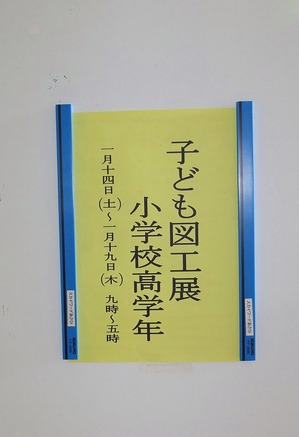 子ども図工展
小学校高学年
一月十四日(土)～一月十九日(木) 九時～五時